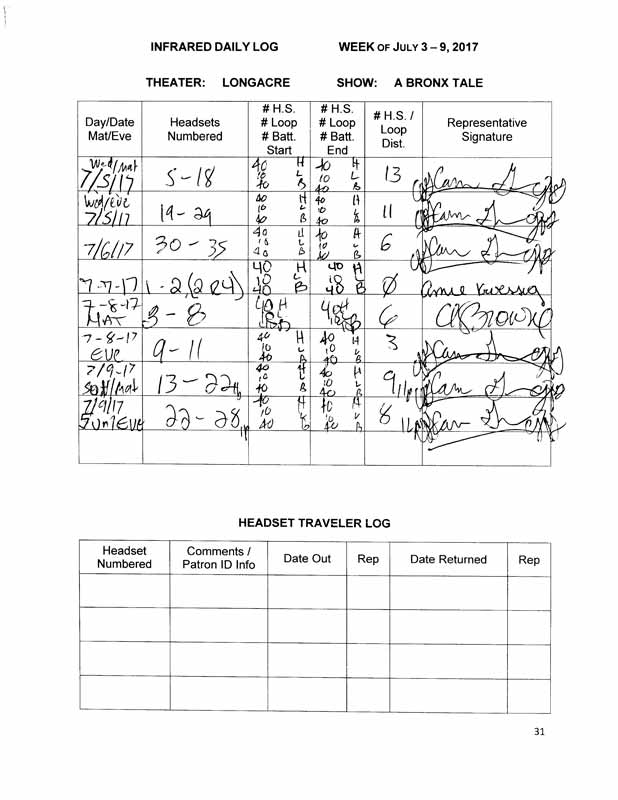 INFRARED DAILY LOG WEEK OF JULY 3 – 9, 2017
THEATER: LONGACRE SHOW: A BRONX TALE
Day/Date Mat/Eve Headsets Numbered # H.S. # Loop # Batt. Start # H.S. # Loop # Batt. End # H.S. / Loop Dist. Representative Signature
Wed/Mat 7/5/17 5-18 40 H 10 L 40 B 40 H 10 L 40 B 13
Wed/Eve 7/5/17 19-29 40 H 10 L 40 B 40 H 10 L 40 B 11
7/6/17 30-35 40 H 10 L 40 B 40 H 10 L 40 B 6
7-7-17 1-2 (2R4) 40 H 10 L 40 B 40 H 10 L 40 B Ø
7-8-17 MAT 3-8 40 H 40 H 6 C Browne
7-8-17 EVE 9-11 40 H 10 L 40 B 40 H 10 L 40 B 3
7/9-17 /Mat 13-22 40 H 10 L 40 B 40 H 10 L 40 B 9
7/9/17 Sun/Eve 22-28 40 H 10 L 40 B 40 H 10 L 40 B 8
HEADSET TRAVELER LOG
Headset Numbered Comments / Patron ID Info Date Out Rep Date Returned Rep
31